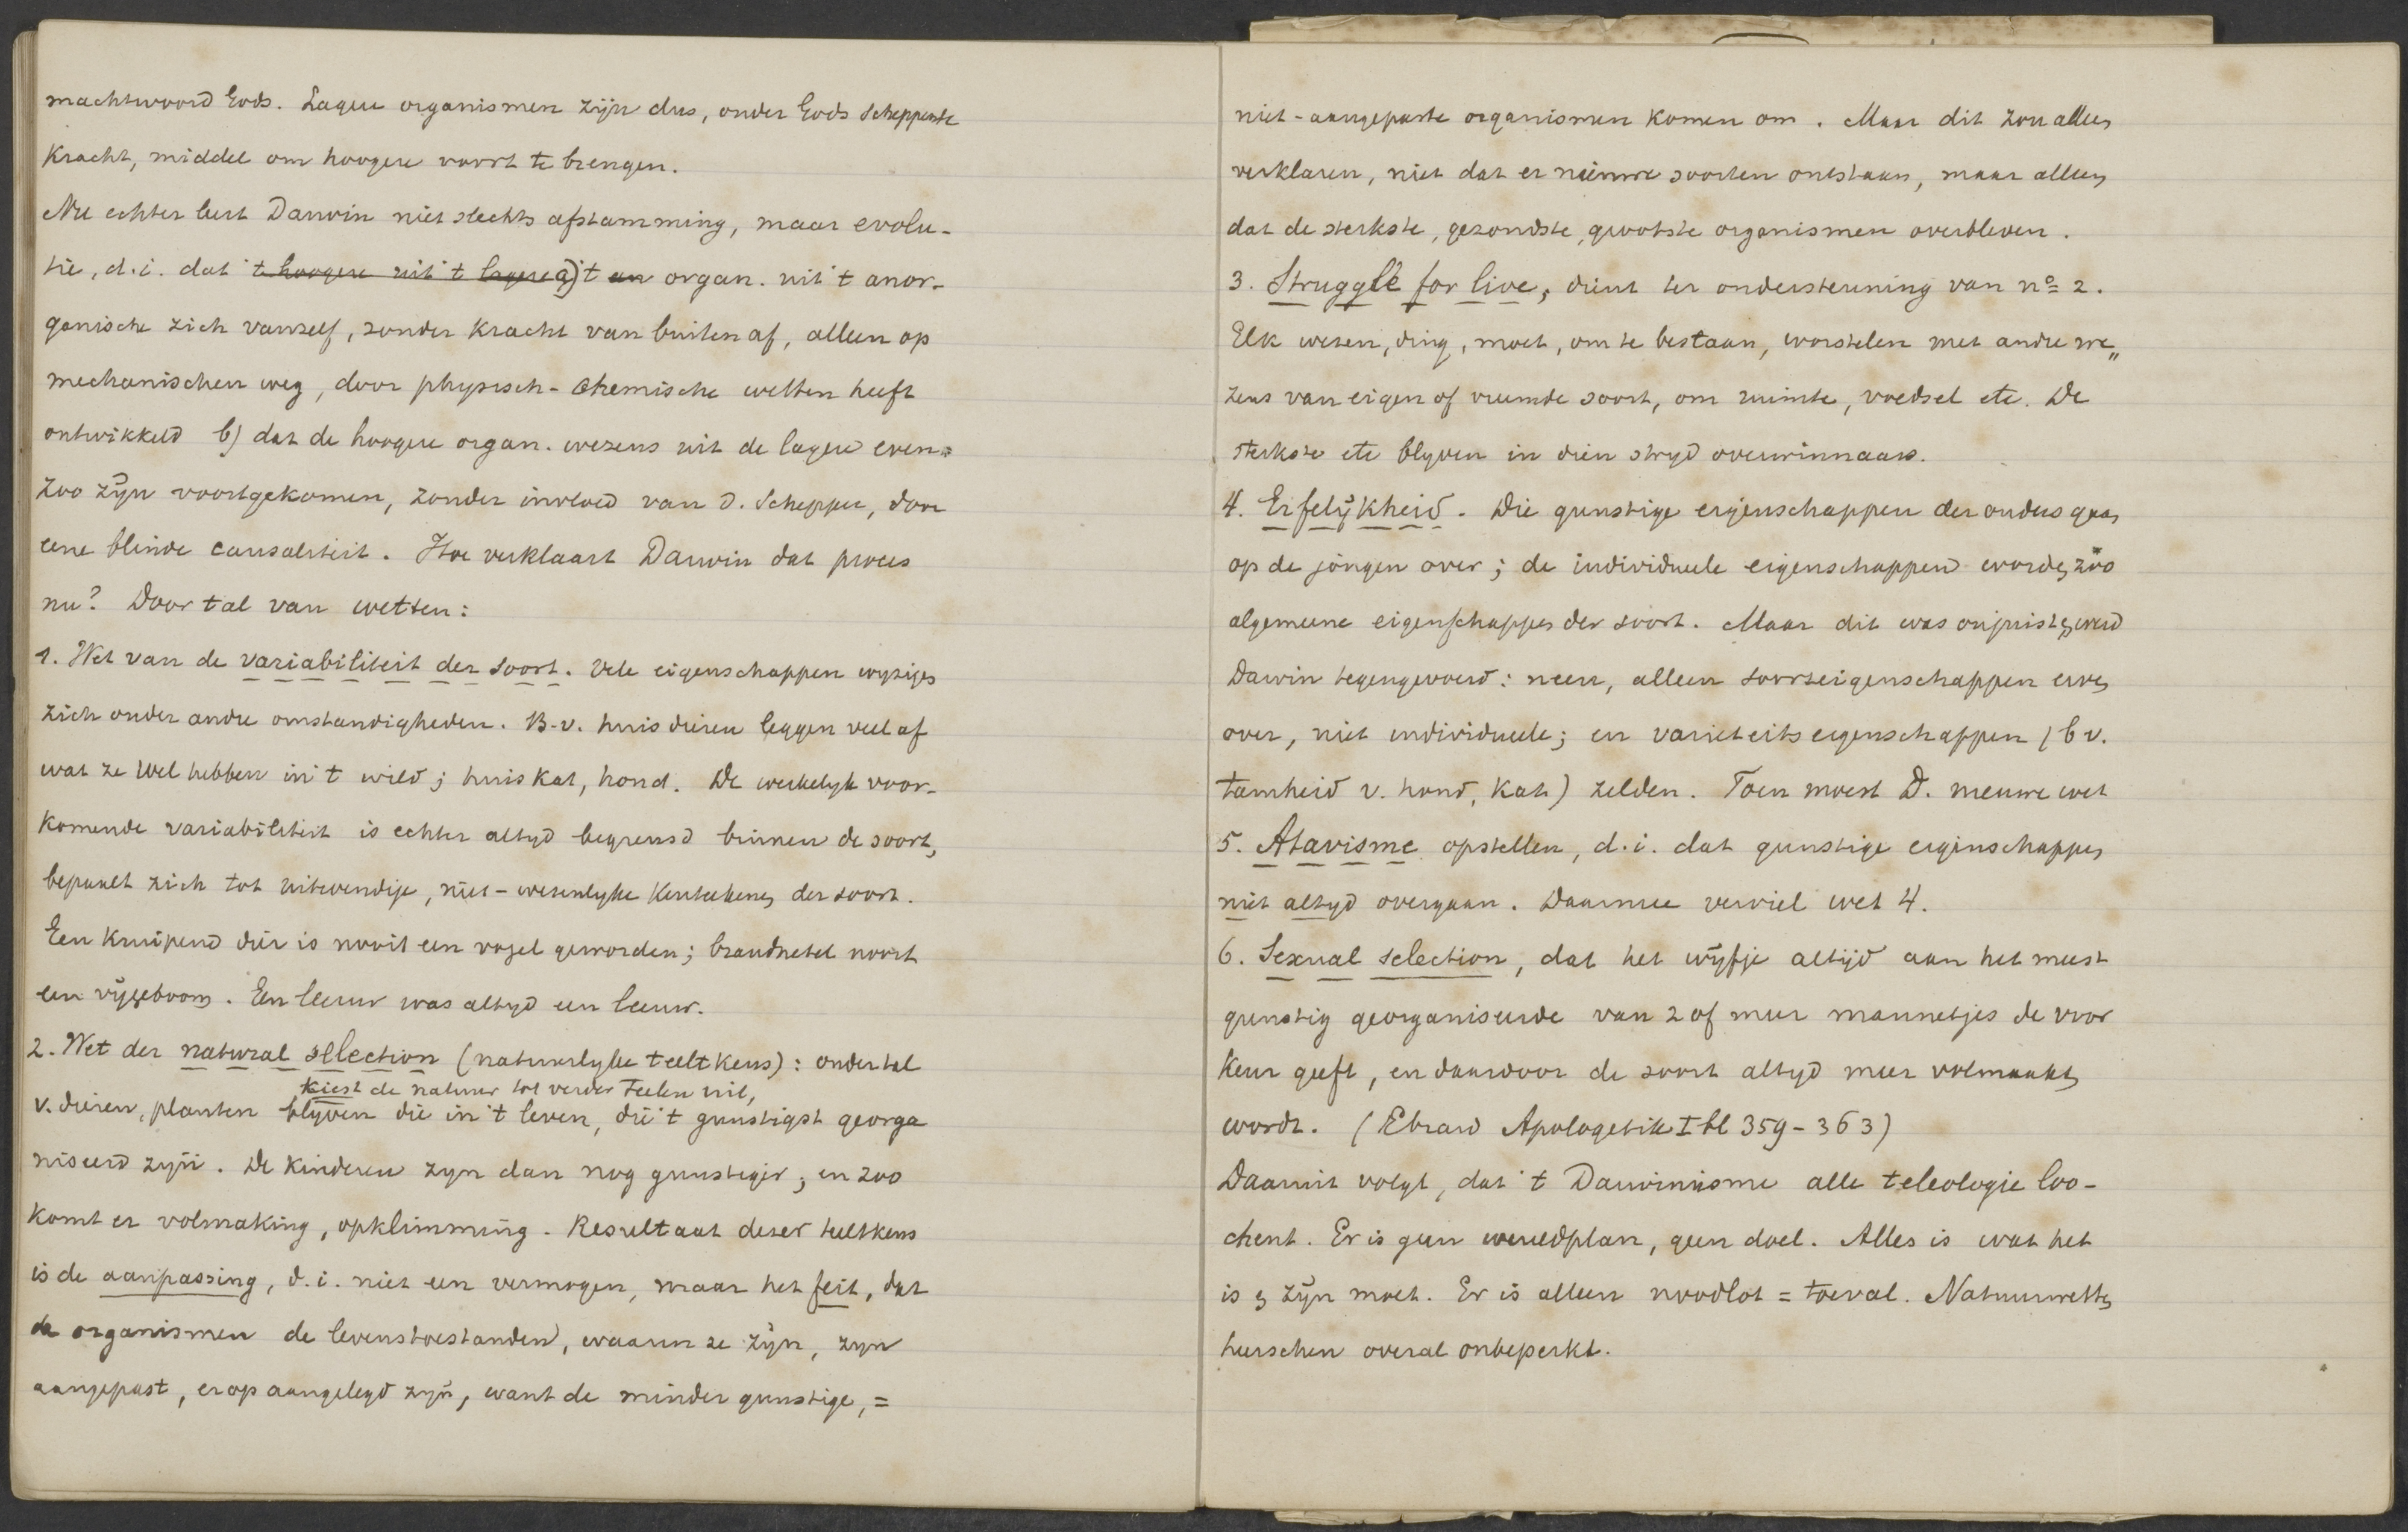 machtwoord Gods. Lagere organismen zijn dus, onder Gods scheppende
kracht, middel om hoogere voort te brengen.
Nu echter leert Darwin niet slechts afstamming, maar evolu-
tie, d.i. dat 't hoogere uit 't lagere a) 't an organ. uit 't anor-
ganische zich vanzelf, zonder kracht van buiten af, alleen op
mechanischen weg, door physisch-chemische wetten heeft
ontwikkeld b) dat de hoogere organ. wezens uit de lagere even=
zoo zijn voortgekomen, zonder invloed van d. Schepper, door
eene blinde causaliteit. Hoe verklaart Darwin dat proces
nu? Door tal van wetten:
1. Wet van de variabiliteit der soort. Vele eigenschappen wyzigen
zich onder andre omstandigheden. B.v. huisdieren leggen veel af
wat ze wel hebben in 't wild; huiskat, hond. De werkelyk voor-
komende variabiliteit is echter altyd begrensd binnen de soort,
bepaalt zich tot uitwendige, niet-wesenlyke kenteekenen der soort.
Een kruipend dier is nooit een vogel geworden; brandnetel nooit
een vijgeboom. Een leeuw was altyd een leeuw.
2. Wet der natural selection (natuurlyke teeltkeus): onder tal
kiest de natuur tot verder teelen uit,
v. dieren, planten blyven die in 't leven, die 't gunstigst georga
niseerd zyn. De kinderen zyn dan nog gunstiger; en zoo
komt er volmaking, opklimming. Resultaat dezer teeltkeus
is de aanpassing, d.i. niet een vermogen, maar het feit, dat
de organismen de levenstoestanden, waarin ze zijn, zyn
aangepast, erop aangelegd zyn, want de minder gunstige, =
niet-aangepaste organismen komen om. Maar dit zou alleen
verklaren, niet dat er nieuwe soorten ontstaan, maar alleen
dat de sterkste, gezondste, grootste organismen overbleven.
3. Struggle for live, dient ter ondersteuning van no 2.
Elk wezen, ding, moet, om te bestaan, worstelen met andre we„
zens van eigen of vreemde soort, om ruimte, voedsel etc. De
sterkste etc blyven in dien stryd overwinnaars.
4. Erfelijkheid. Die gunstige eigenschappen der ouders gaan
op de jongen over; de individueele eigenschappen worden zoo
algemeene eigenschappen der soort. Maar dit was onjuist, werd
Darwin tegengevoerd: neen, alleen soortseigenschappen erven
over, niet individueele; en varieteitseigenschappen (bv.
tamheid v. hond, kat) zelden. Toen moest D. nieuwe wet
5. Atavisme opstellen, d.i. dat gunstige eigenschappen
niet altyd overgaan. Daarmee verviel wet 4.
6. Sexual selection, dat het wijfje altijd aan het meest
gunstig georganiseerde van 2 of meer mannetjes de voor
keur geeft, en daardoor de soort altyd meer volmaakt
wordt. (Ebrard Apologetik I bl 359-363)
Daaruit volgt, dat 't Darwinisme alle teleologie loo-
chent. Er is geen wereldplan, geen doel. Alles is wat het
is & zijn moet. Er is alleen noodlot = toeval. Natuurwetten
heerschen overal onbeperkt.